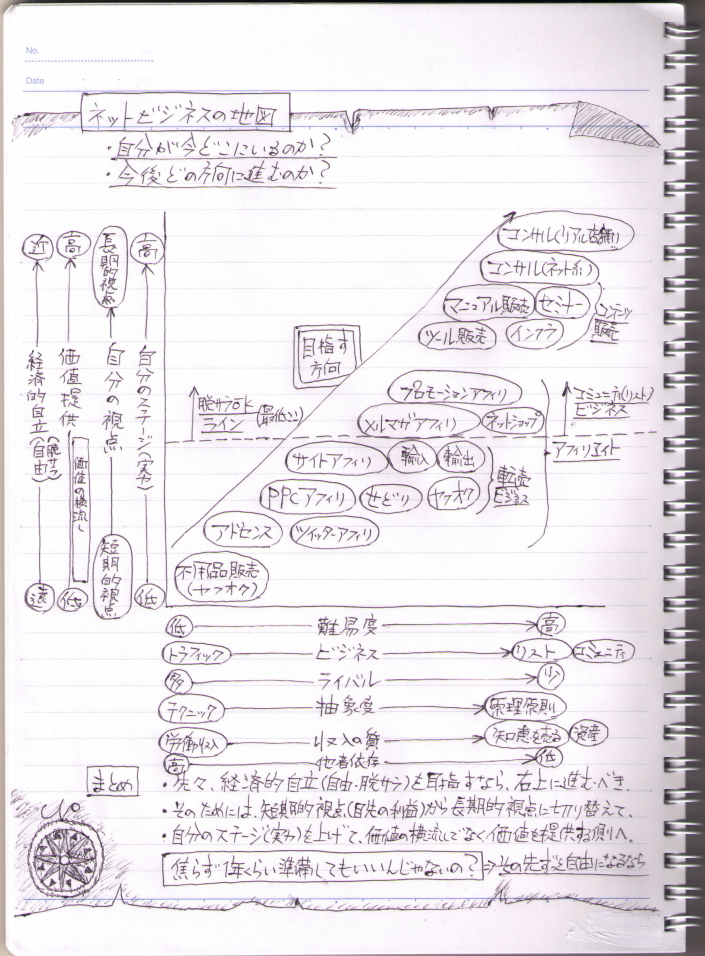 No.
Date
ネットビジネスの地図
・自分が今どこにいるのか?
・今後どの方向に進むのか?
近 高 長期的視点 高
経済的自立(自由)(脱サラ)
価値提供
価値の横流し
自分の視点
自分のステージ(実力)
遠 低 短期的視点 低
コンサル(リアル店舗)
コンサル(ネット系)
マニュアル販売 セミナー
ツール販売 インフラ
コンテンツ販売
目指す方向
プロモーションアフィリ
メルマガアフィリ ネットショップ
コミュニティ(リスト)ビジネス
脱サラOKライン(最低ここ)
アフィリエイト
サイトアフィリ 輸入 輸出
PPCアフィリ せどり ヤフオク
転売ビジネス
アドセンス ツイッターアフィリ
不用品販売
(ヤフオク)
低 難易度 高
トラフィック ビジネス リスト コミュニティ
多 ライバル 少
テクニック 抽象度 原理原則
労働収入 収入の質 知恵を売る 資産
高 他者依存 低
まとめ
・先々、経済的自立(自由・脱サラ)を目指すなら、右上に進むべき.
・そのためには、短期的視点(目先の利益)から長期的視点に切り替えて、
・自分のステージ(実力)を上げて、価値の横流しでなく価値を提供する側へ.
焦らず1年くらい準備してもいいんじゃないの? ⇒その先ずっと自由になるなら